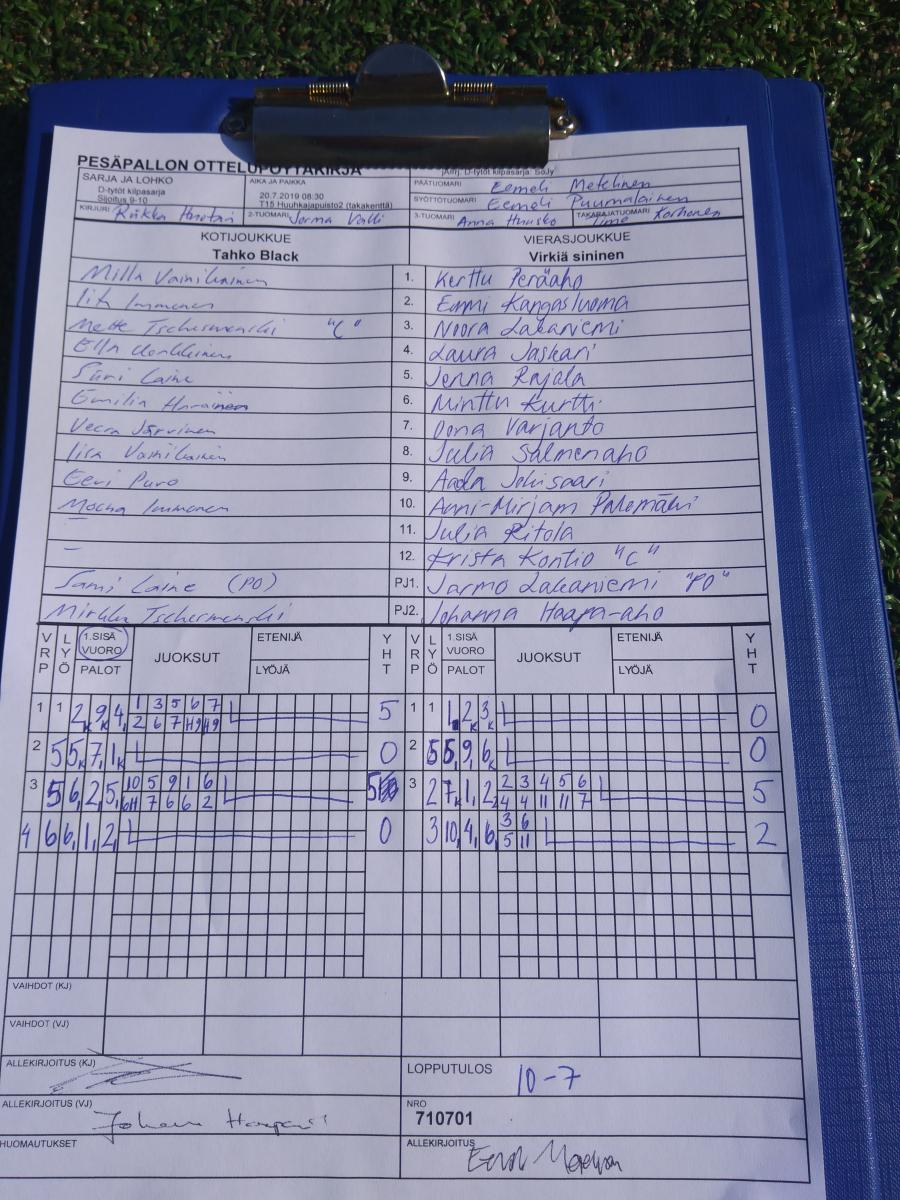 PESÄPALLON OTTELUPÖYTÄKIRJA
SARJA JA LOHKO
D-tytöt kilpasarja
Sijoitus 9-10
AIKA JA PAIKKA
20.7.2019 08:30
T15 Huuhkajapuisto2 (takakenttä)
D-tytöt kilpasarja
PÄÄTUOMARI Eemeli Metelinen
SYÖTTÖTUOMARI Eemeli Puumalainen
KIRJURI
2-TUOMARI Jorma Valli
3-TUOMARI Anna Huusko
TAKARAJATUOMARI Timo Korhonen
KOTIJOUKKUE VIERASJOUKKUE
Tahko Black Virkiä sininen
Milla Vainikainen 1. Kerttu Peräaho
Iita Immonen 2. Emmi Kangasluoma
Mette Tschernenski "C" 3. Noora Lakaniemi
Ella 4. Laura Jaskari
Saini Laine 5. Jenna Rajala
Emilia 6. Minttu Kurtti
Veera Järvinen 7. Oona Varjanto
Iisa Vainikainen 8. Julia Salmenaho
Eevi Puro 9. Aada Jokisaari
Immonen 10. Anni-Mirjam
– 11. Julia Ritola
– 12. Krista Kontio "C"
Sami Laine (PO) PJ1. Jarmo Lakaniemi "PO"
Mirkku Tschernenski PJ2. Johanna Haapa-aho
VRP LYÖ 1.SISÄ VUORO PALOT JUOKSUT ETENIJÄ LYÖJÄ YHT VRP LYÖ 1.SISÄ VUORO PALOT JUOKSUT ETENIJÄ LYÖJÄ YHT
1 1 2K 9K 4, 1 3 5 6 7 5 1 1 1, 2K 3K 0
2 6 7 H9 H9
2 5 5K 7, 1K 0 2 5 5, 9, 6K 0
3 5 6, 2, 5, 10 5 9 1 6 5 3 2 7K 1, 2, 2 3 4 5 6 5
6H 7 6 6 2 4 4 11 11 7
4 6 6, 1, 2, 0 3 10, 4, 6, 3 6 2
5 11
VAIHDOT (KJ)
VAIHDOT (VJ)
ALLEKIRJOITUS (KJ)
LOPPUTULOS 10-7
ALLEKIRJOITUS (VJ)
NRO
710701
HUOMAUTUKSET
ALLEKIRJOITUS